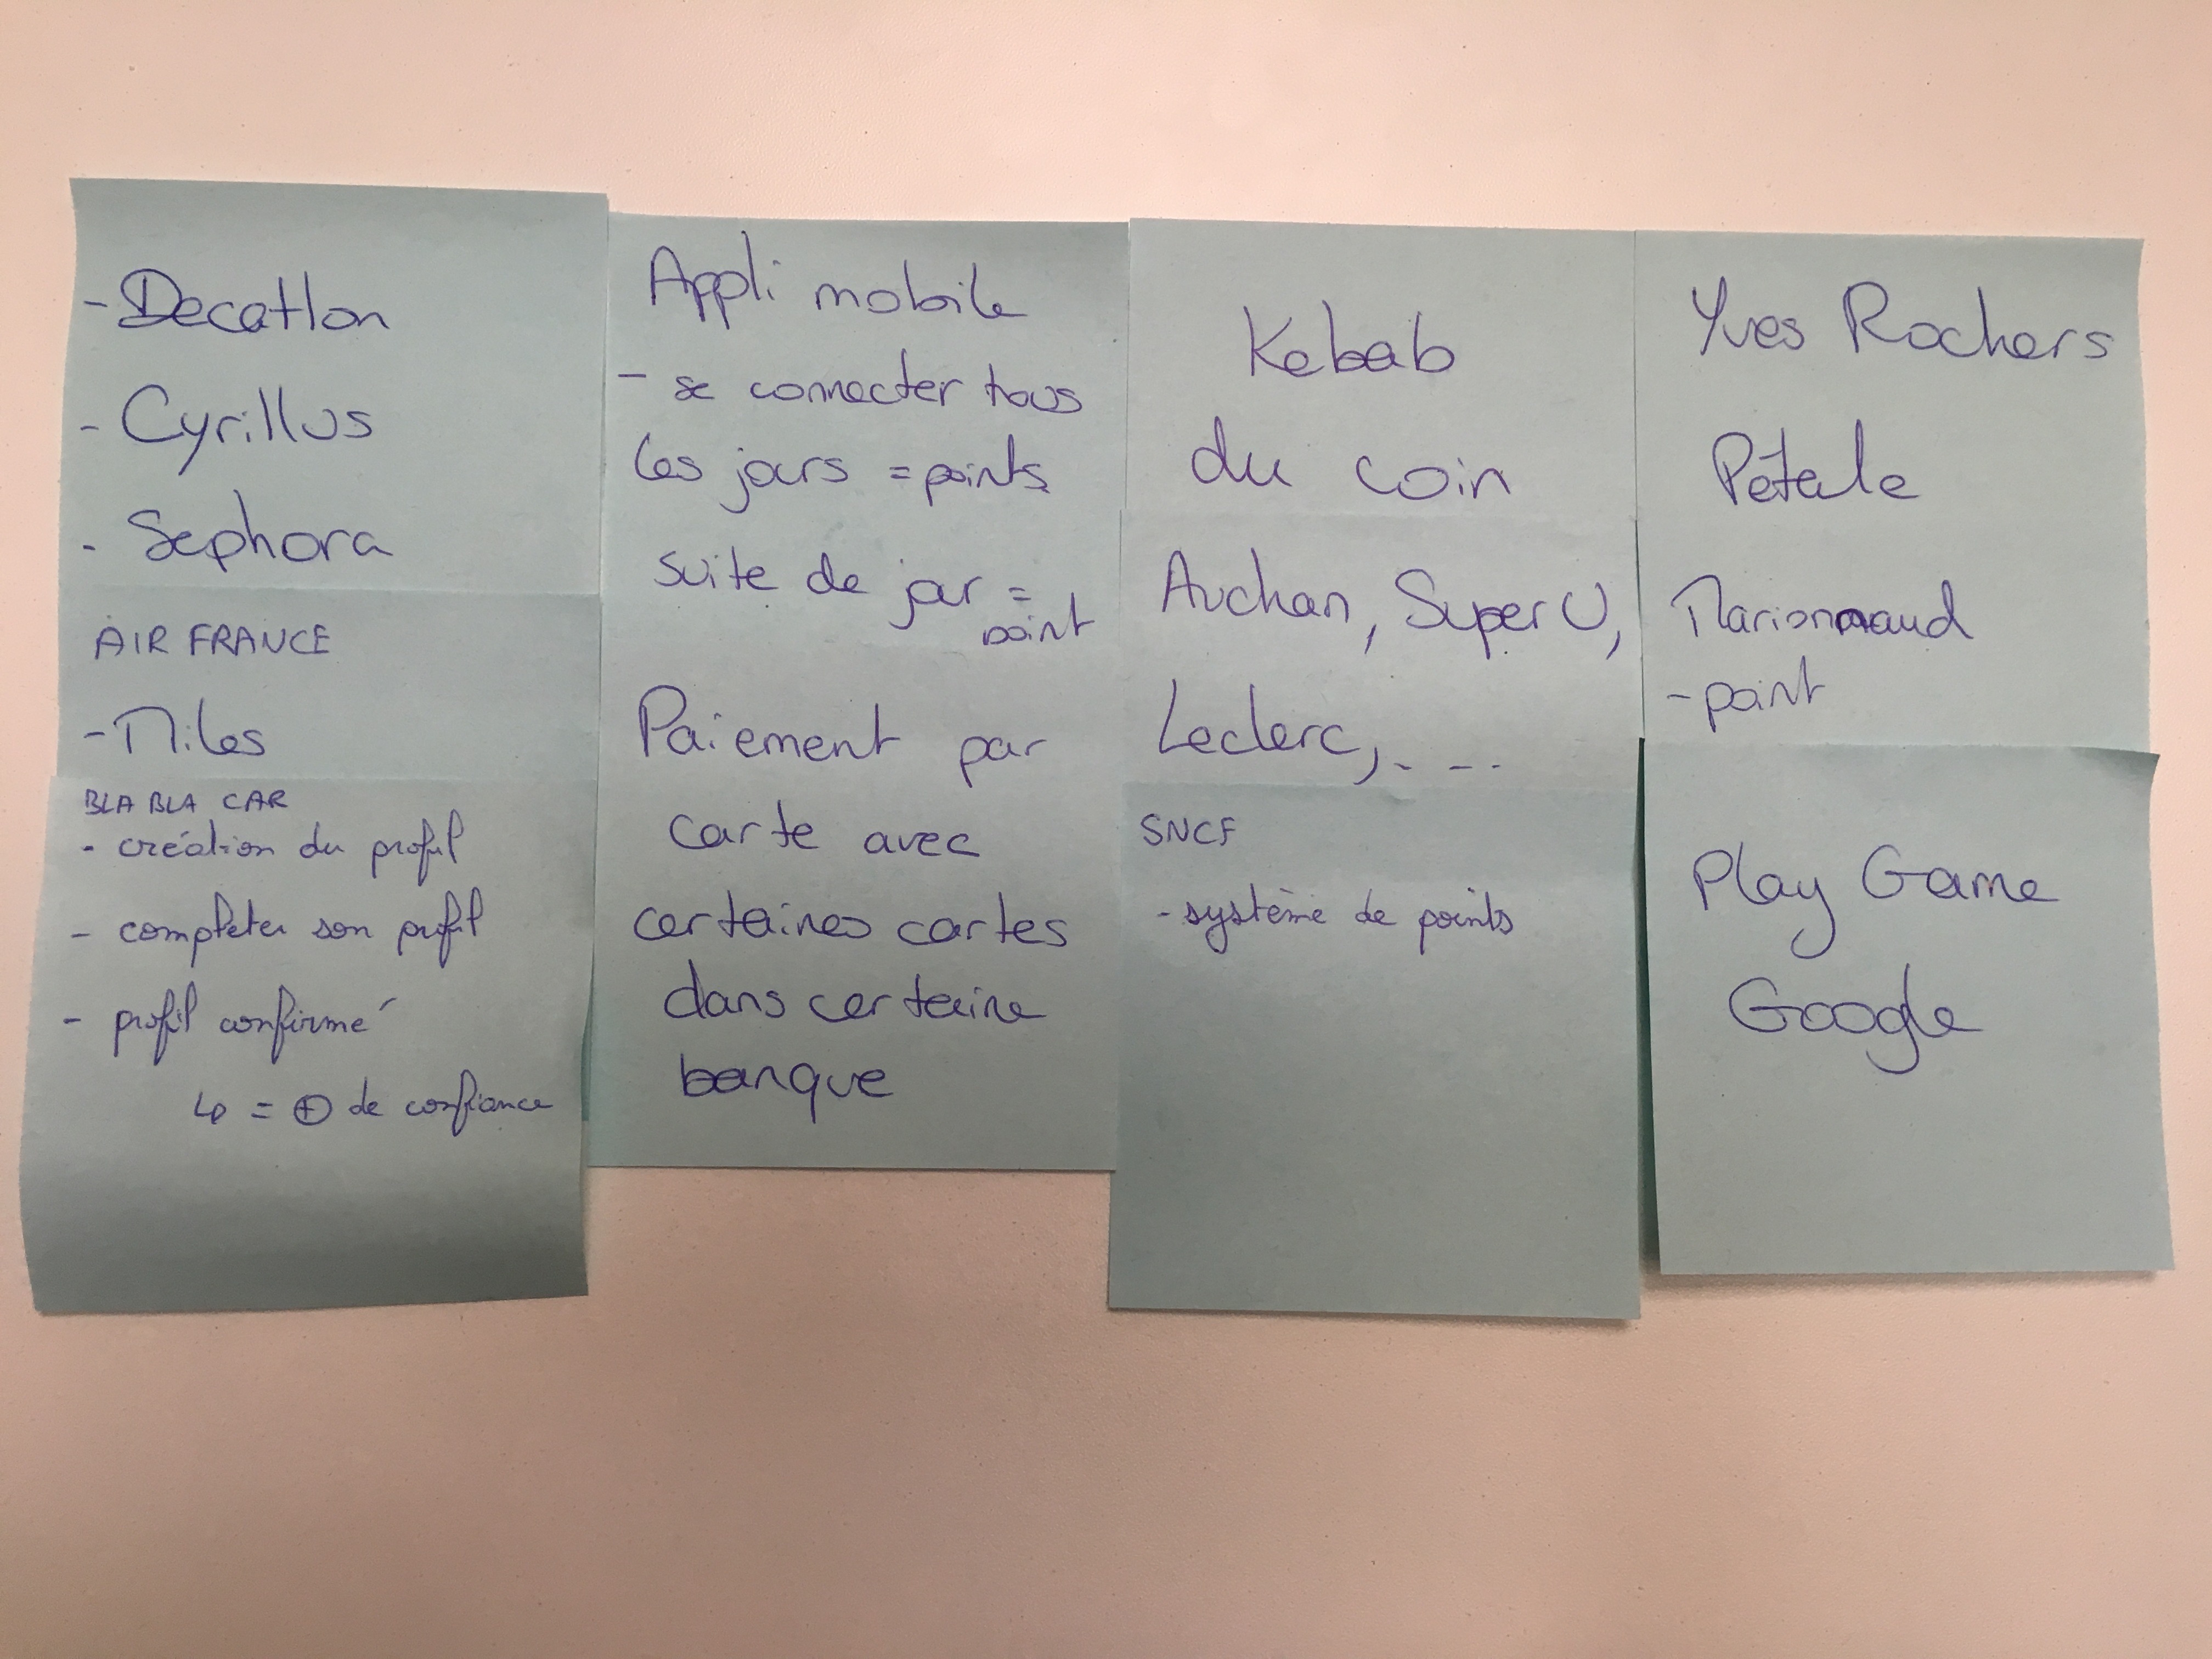 - Decatlon
- Cyrillus
- Sephora
AIR FRANCE
- Miles
BLA BLA CAR
- création du profil
- completer son profil
- profil confirmé
↳ = ⊕ de confiance
Appli mobile
- se connecter tous
les jours = points
suite de jour =
point
Paiement par
carte avec
certaines cartes
dans certaine
banque
Kebab
du coin
Auchan, Super U,
Leclerc, . . .
SNCF
- système de points
Yves Rochers
Pétale
Marionnaud
- point
Play Game
Google